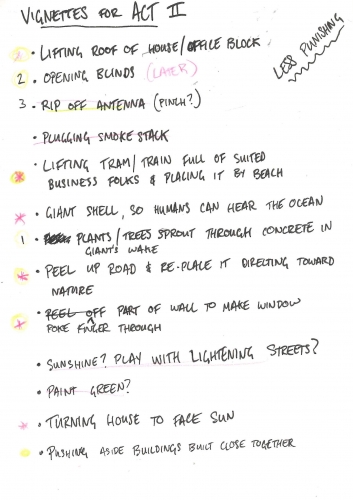 VIGNETTES FOR ACT II
LESS PUNISHING
• LIFTING ROOF OF HOUSE/OFFICE BLOCK
2. OPENING BLINDS (LATER)
3. RIP OFF ANTENNA (PINCH?)
• PLUGGING SMOKE STACK
• LIFTING TRAM/TRAIN FULL OF SUITED
BUSINESS FOLKS & PLACING IT BY BEACH
• GIANT SHELL, SO HUMANS CAN HEAR THE OCEAN
1 • PLANTS/TREES SPROUT THROUGH CONCRETE IN
GIANT'S WAKE
• PEEL UP ROAD & RE-PLACE IT DIRECTING TOWARD
NATURE
• PEEL OFF PART OF WALL TO MAKE WINDOW
POKE FINGER THROUGH
• SUNSHINE? PLAY WITH LIGHTENING STREETS?
• PAINT GREEN?
• TURNING HOUSE TO FACE SUN
• PUSHING ASIDE BUILDINGS BUILT CLOSE TOGETHER